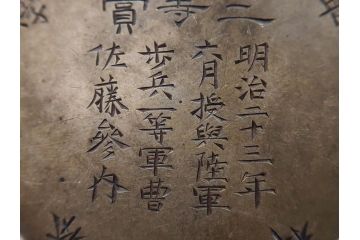 三等賞
明治二十三年
六月授與陸軍
歩兵一等軍曹
佐藤參内